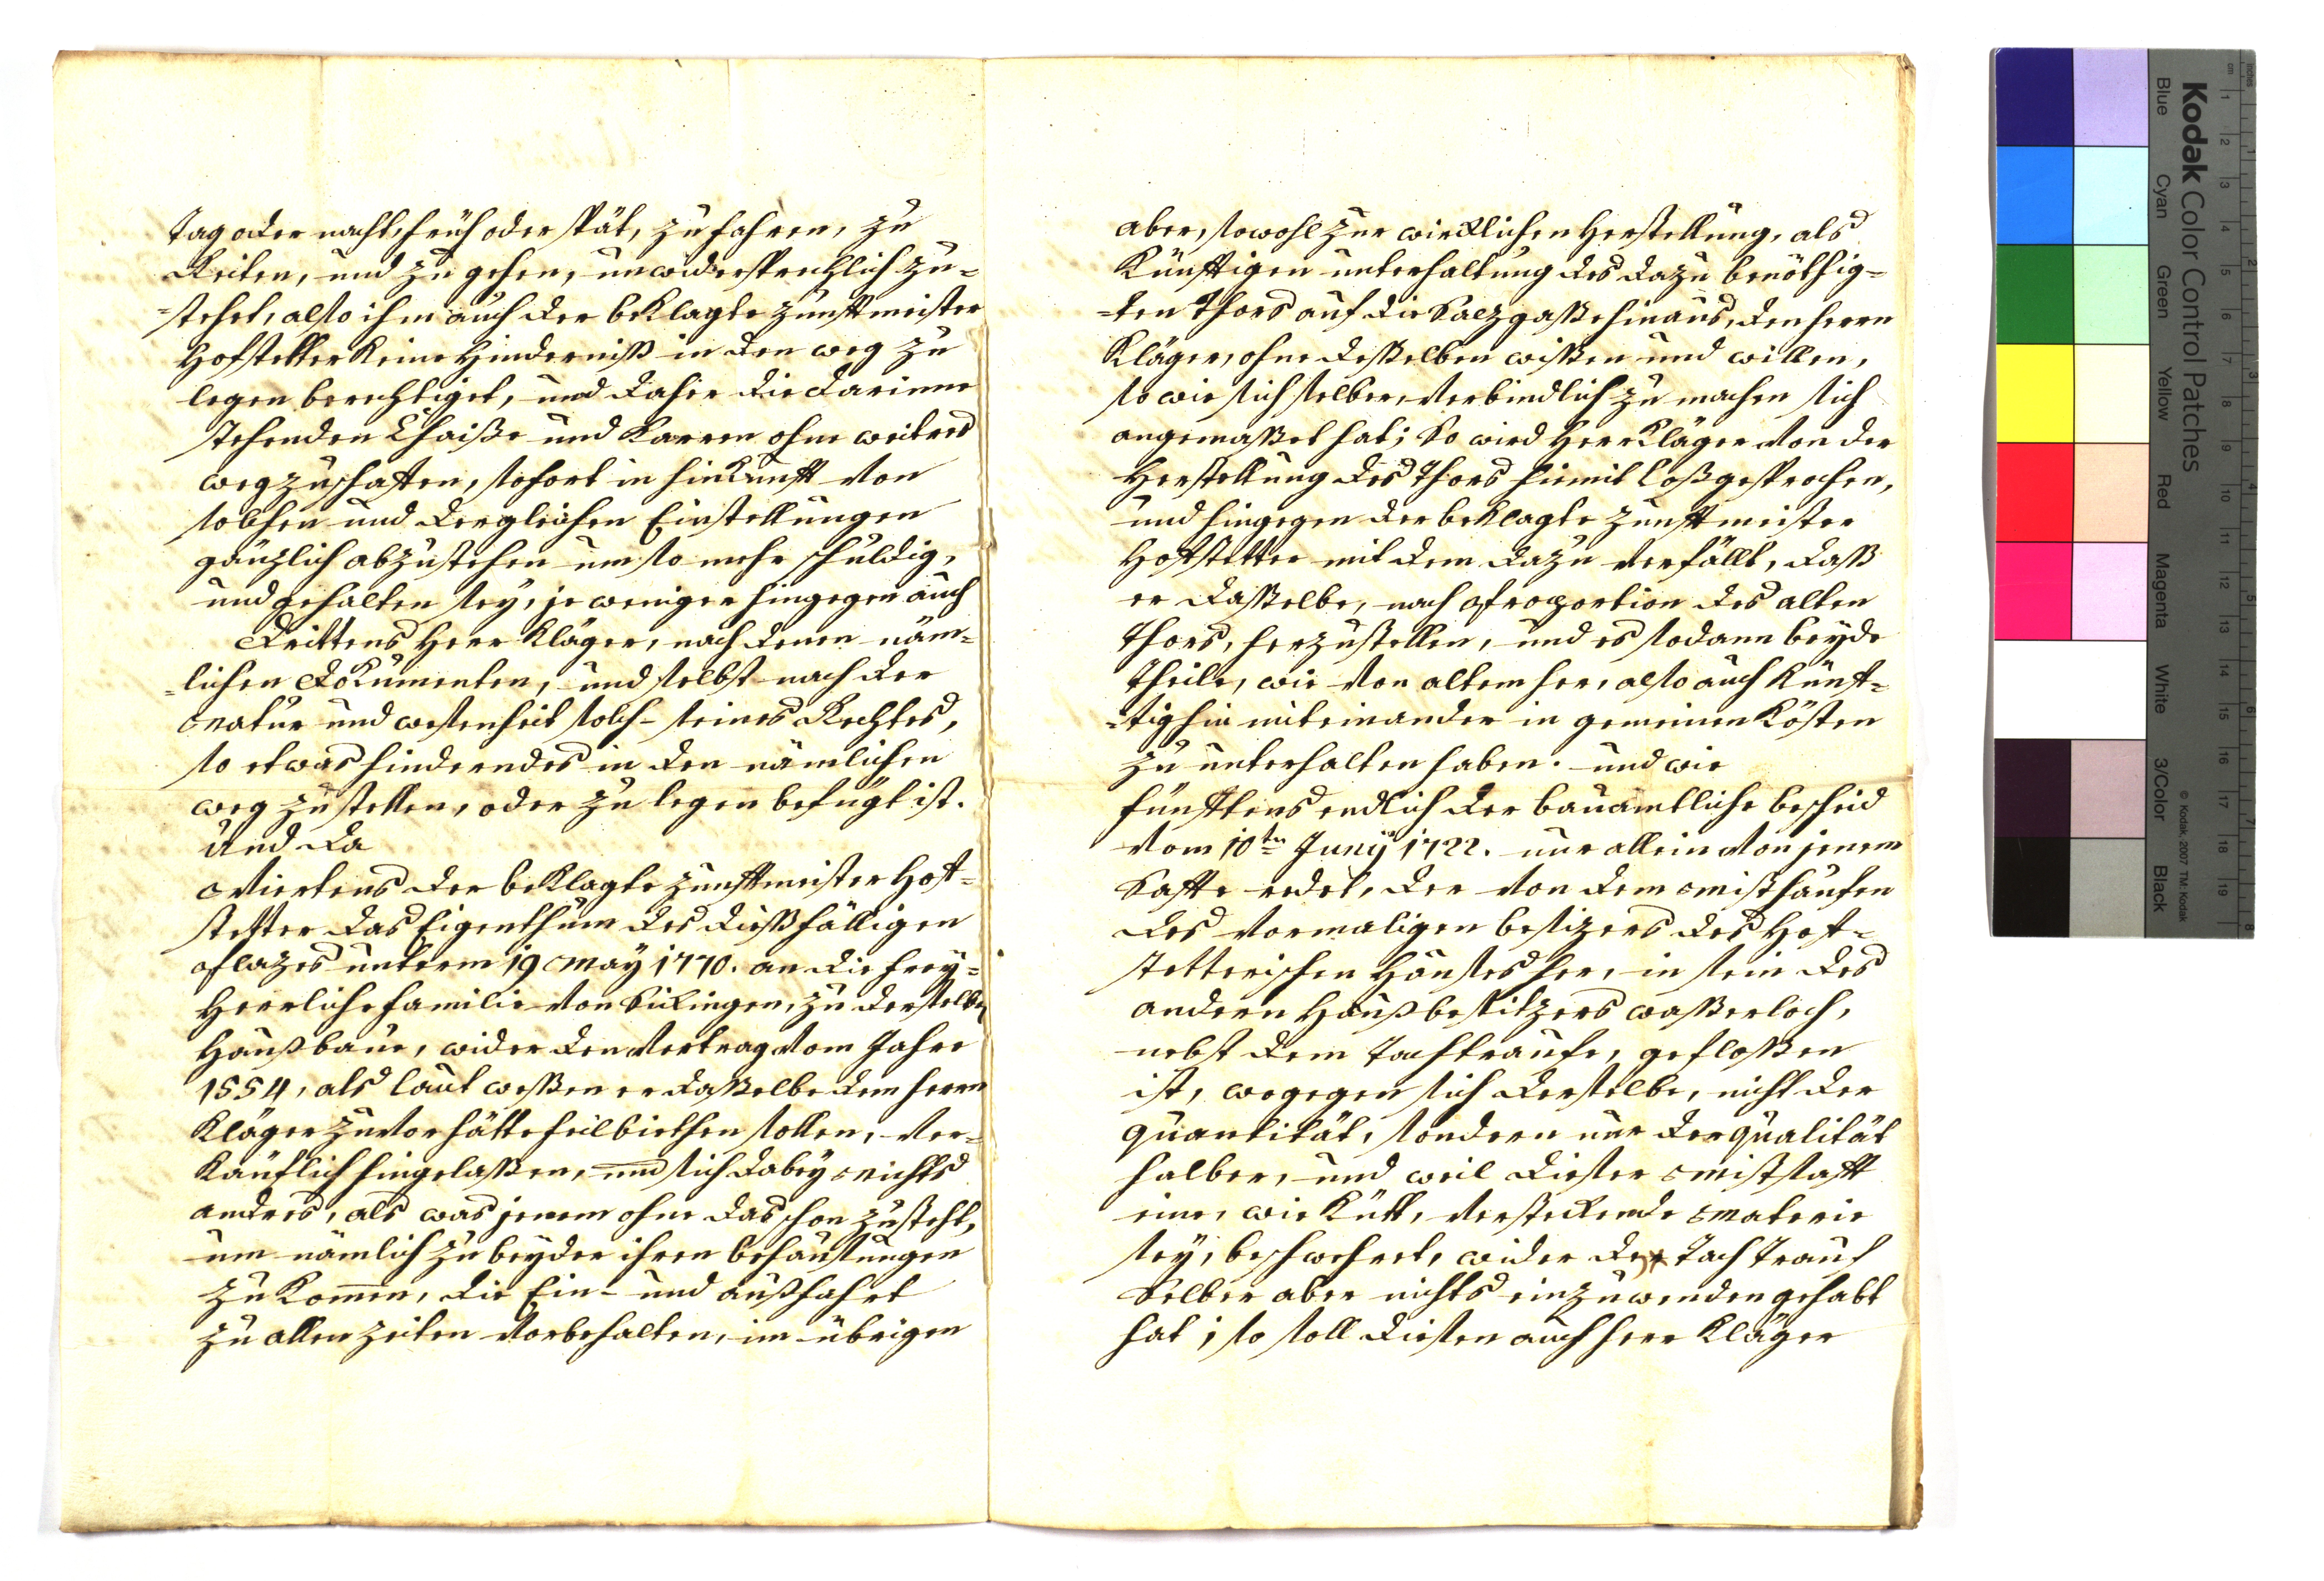 Tag oder nacht, früh oder spät, zu fahren, zu
Reiten, und zu gehen, unwidersprechlich zu=
=stehet, also ihm auch der beklagte zunftmeister
Hofstetter keine Hinderniß in den weg zu
legen berechtiget, und daher die darinne
stehenden Chaiße und Karren ohne weiters
wegzuschaffen, sofort in hinkunft von
solchen und dergleichen Einstellungen
gänzlich abzustehen um so mehr schuldig,
und gehalten sey, je weniger hingegen auch
Drittens Herr Kläger, nach denen näm=
=lichen Dokumenten, und selbst nach der
Natur und wesenheit solch-seines Rechtes,
so etwas hinderndes in den nämlichen
weg zu stellen, oder zu legen befugt ist.
und da
Viertens der beklagte zunftmeister Hof=
stetter das Eigenthum des dießfälligen
Plazes unterm 19 May 1770. an die frey=
Herrliche familie von Sickingen, zu derselben
Haußbaue, wider den Vertrag vom Jahre
1554, als laut weßen er daßelbe dem herrn
Kläger zuvor hätte feilbiethen sollen, ver=
käuflich hingelaßen, und sich dabey nichts
anders, als was jenem ohne das schon zusteht,
um nämlich zu beyder ihren behausungen
zu kommen, die Ein- und außfahrt
zu allen zeiten vorbehalten, im übrigen
aber, sowohl zur wircklichen Herstellung, als
künftigen unterhaltung des dazu benöthig=
=ten Thors auf die Salzgaße hinaus, den herrn
Kläger, ohne deßelben wißen und willen,
so wie sich selber, verbindlich zu machen sich
angemaßet hat; So wird Herr Kläger von der
Herstellung des Thors hiemit loßgesprochen,
und hingegen der beklagte zunftmeister
Hofstetter mit dem dazu verfällt, daß
er dasselbe, nach Proportion des alten
Thors, herzustellen, und es sodann beyde
Theile, wie von altem her, also auch künf=
=tighin miteinander in gemeinen Kösten
zu unterhalten haben. und wie
fünftens endlich der bauamtliche bescheid
vom 10ten Junÿ 1722. nur allein von jenem
Safte redet, der von dem Misthaufen
des vormaligen besizers des Hof=
stetterischen Haußes her, in sein des
andern Haußbesitzers waßerloch,
nebst dem Tachtraufe, gefloßen
ist, wogegen sich derselbe, nicht der
quantität, sondern nur der qualität
halber, und weil dieser Mistsaft
eine, wie Kütt, versteckende Materie
sey, beschwehret, wider den Tach Trauf
Selber aber nichts einzuwenden gehabt
hat; so soll diesen auch herr Kläger
Kodak Color Control Patches
Blue Cyan Green Yellow Red Magenta White 3/Color Black
© Kodak, 2007 TM: Kodak